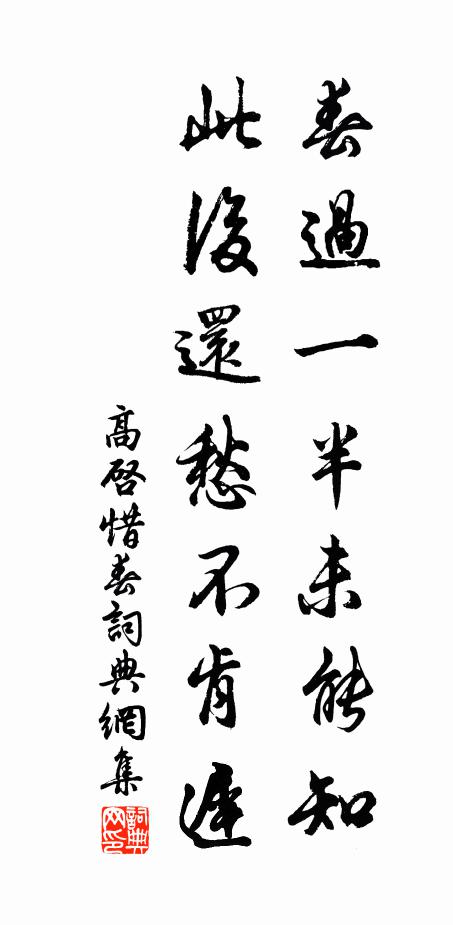 春過一半未能知
此後還愁不肯遲
高啓惜春詞典網集
詞典网印